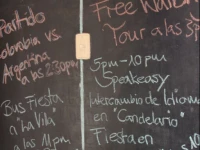 Partido
Colombia vs.
Argentina
a las 2:30pm
Bus Fiesta
"a la Vila"
a las 11pm
Free Walk
Tour a las 3
5pm - 10pm
Speakeasy
Intercambio de Idioma
en "Candelario"
Fiesta en